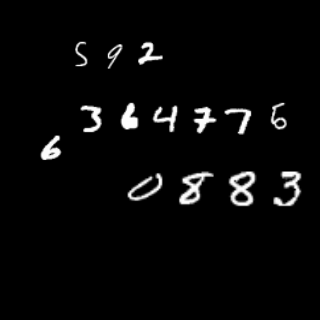 592
364776
6
0883